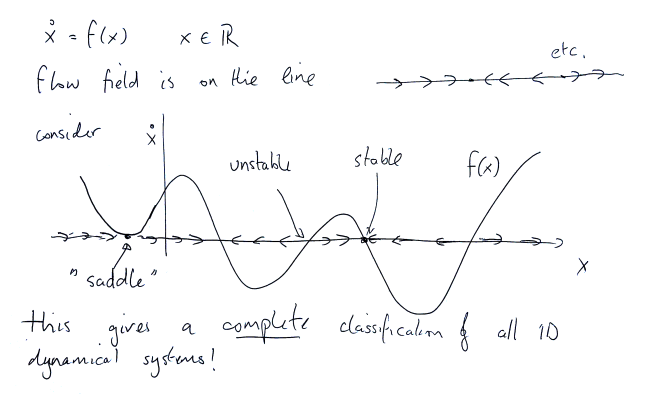 ẋ = f(x) x ∈ ℝ
flow field is on the line
etc.
consider
ẋ
unstable
stable
f(x)
x
"saddle"
This gives a complete classification of all 1D
dynamical systems!